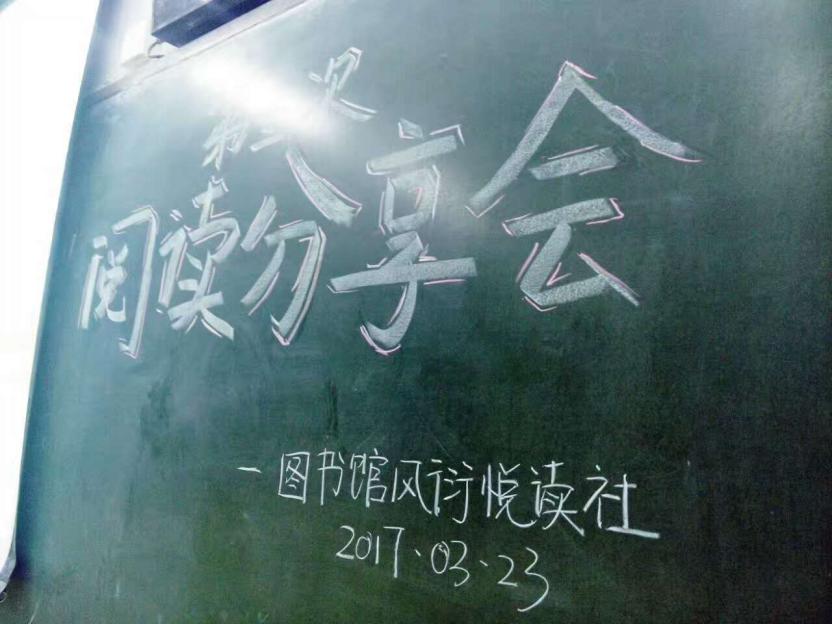 第一次
阅读分享会
一图书馆风衍悦读社
2017.03.23